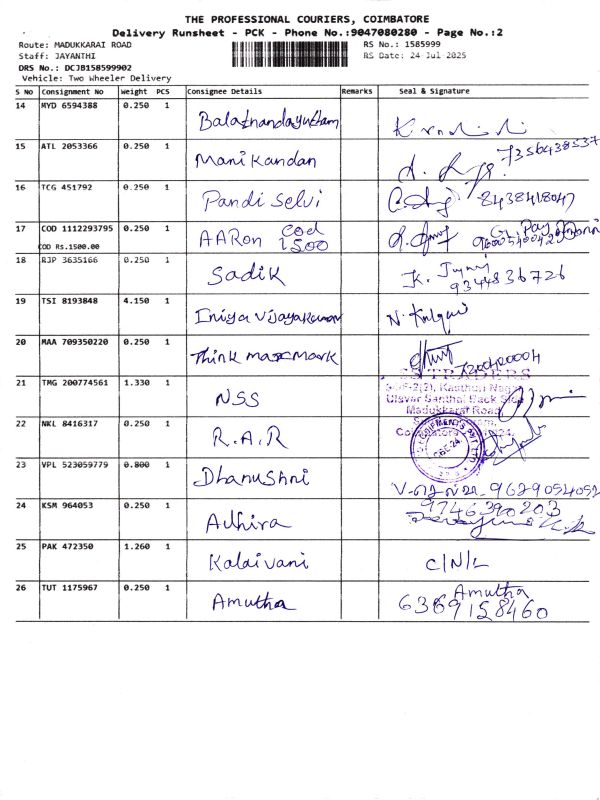 THE PROFESSIONAL COURIERS, COIMBATORE
Delivery Runsheet - PCK - Phone No.:9047080280 - Page No.:2
Route: MADUKKARAI ROAD RS No.: 1585999
Staff: JAYANTHI RS Date: 24-Jul-2025
DRS No.: DCJB158599902
Vehicle: Two Wheeler Delivery
S No Consignment No Weight PCS Consignee Details Remarks Seal & Signature
14 MYD 6594388 0.250 1
15 ATL 2053366 0.250 1 Manikandan 7356438537
16 TCG 451792 0.250 1 Pandi Selvi 8438418047
17 COD 1112293795 0.250 1 AARon COD 1500 G. Pay
COD RS.1500.00
18 RJP 3635166 0.250 1 Sadik 9344836726
19 TSI 8193848 4.150 1 Iniya
20 MAA 709350220 0.250 1 Think
21 TMG 200774561 1.330 1 NSS TRADERS
Madukkarai Road
22 NKL 8416317 0.250 1 R.A.R
23 VPL 523059779 0.800 1 Dhanushni 9629054052
24 KSM 964053 0.250 1 Adhira 9746390203
25 PAK 472350 1.260 1 Kalaivani C/N/L
26 TUT 1175967 0.250 1 Amutha Amutha
6369158460